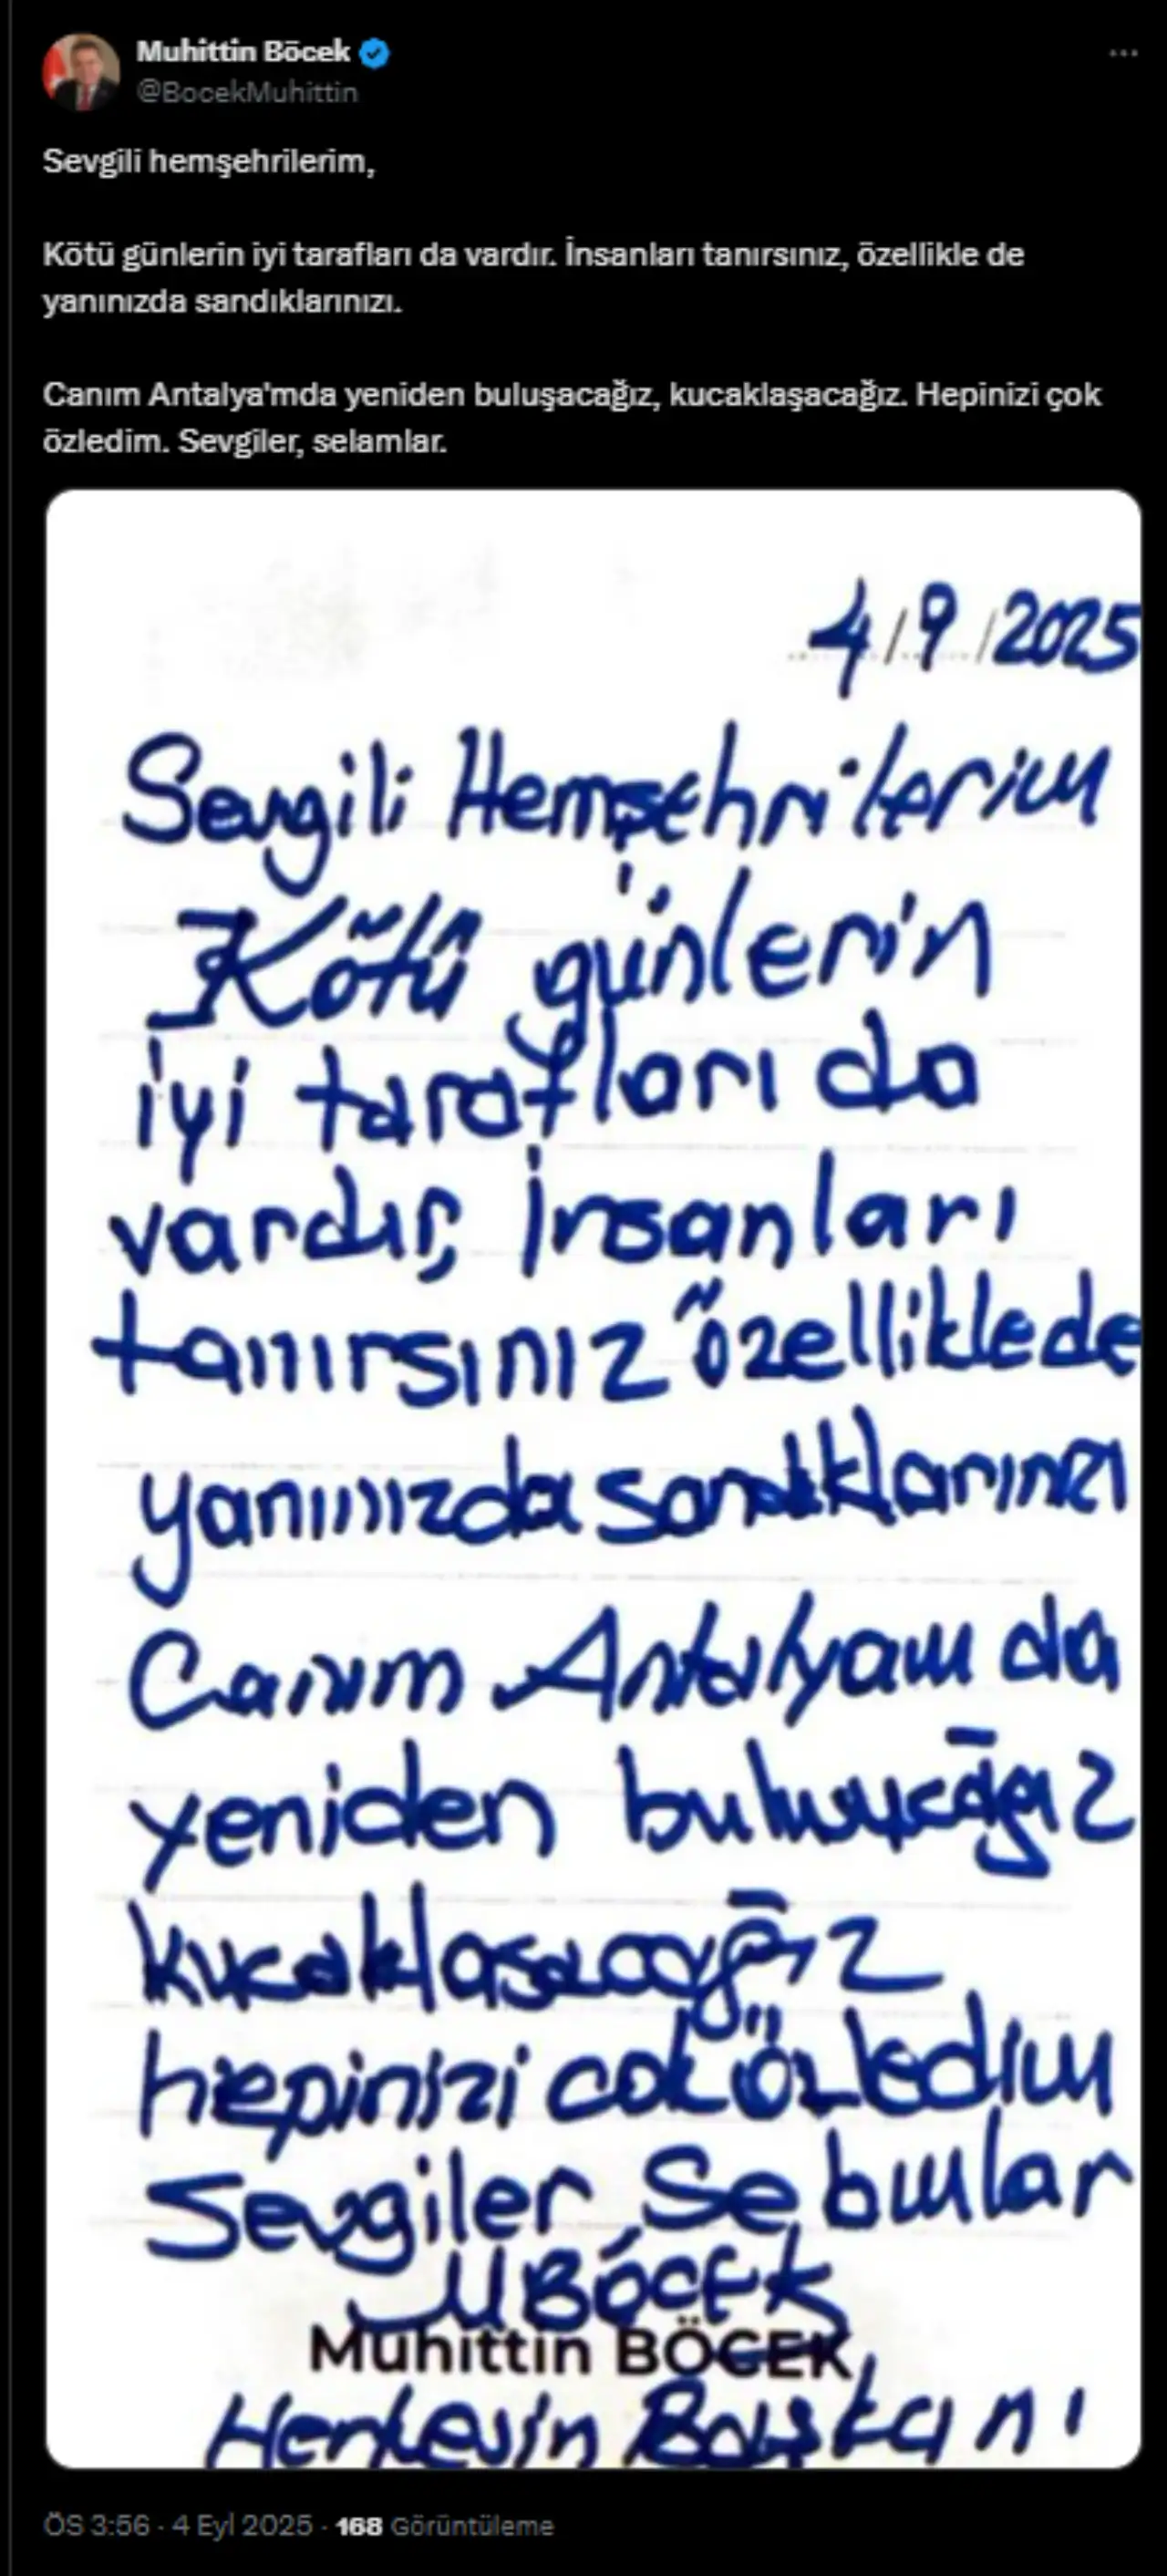 Muhittin Böcek
@BocekMuhittin
Sevgili hemşehrilerim,
Kötü günlerin iyi tarafları da vardır. İnsanları tanırsınız, özellikle de
yanınızda sandıklarınızı.
Canım Antalya'mda yeniden buluşacağız, kucaklaşacağız. Hepinizi çok
özledim. Sevgiler, selamlar.
4/9/2025
Sevgili Hemşehrilerim
Kötü günlerin
iyi tarafları da
vardır, İnsanları
tanırsınız özelliklede
yanınızda sandıklarınızı
Canım Antalyam da
yeniden buluşucağız
kucaklaşacağız
hepinizi çok özledim
Sevgiler, Selamlar
M BÖCEK
Muhittin BÖCEK
Herkesin Başkanı
ÖS 3:56 · 4 Eyl 2025 · 168 Görüntüleme